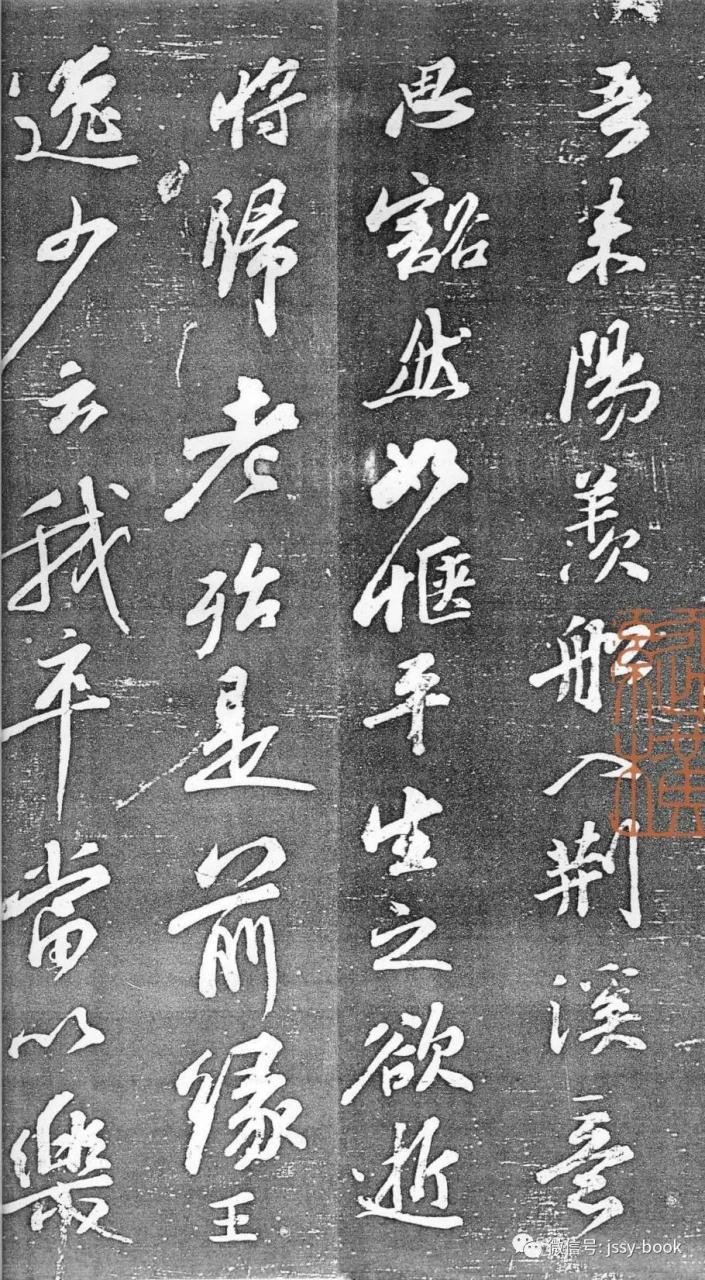 吾来陽羨船入荆溪意
思豁然如愜平生之欲逝
将歸老殆是前緣王
逸少云我卒當以樂
微信号: jssy-book